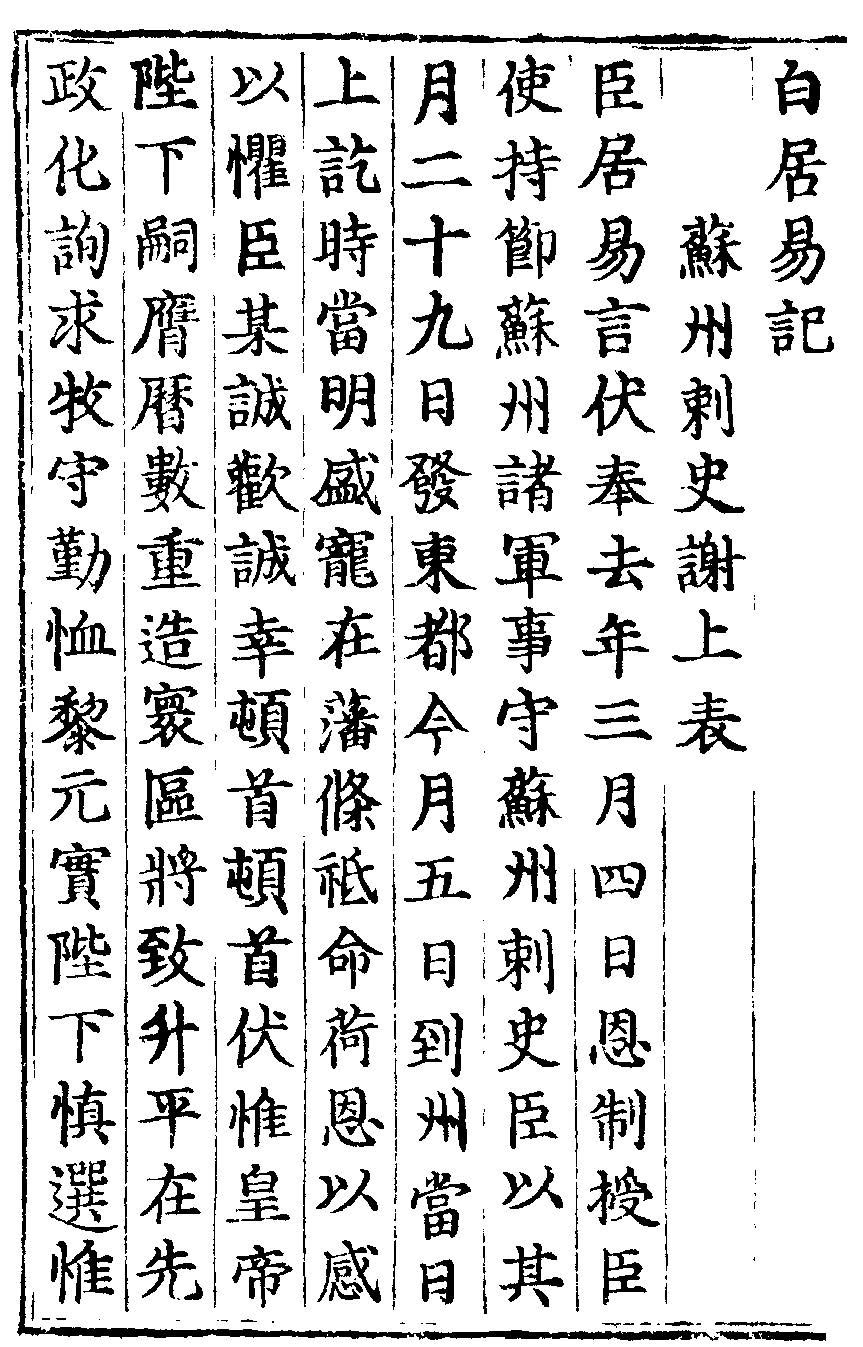 白居易記
蘇州刺史謝上表
臣居易言伏奉去年三月四日恩制授臣
使持節蘇州諸軍事守蘇州刺史臣以其
月二十九日發東都今月五日到州當日
上訖時當明盛寵在藩條祗命荷恩以感
以懼臣某誠歡誠幸頓首頓首伏惟皇帝
陛下嗣膺曆數重造寰區將致升平在先
政化詢求牧守勤恤黎元實陛下慎選惟